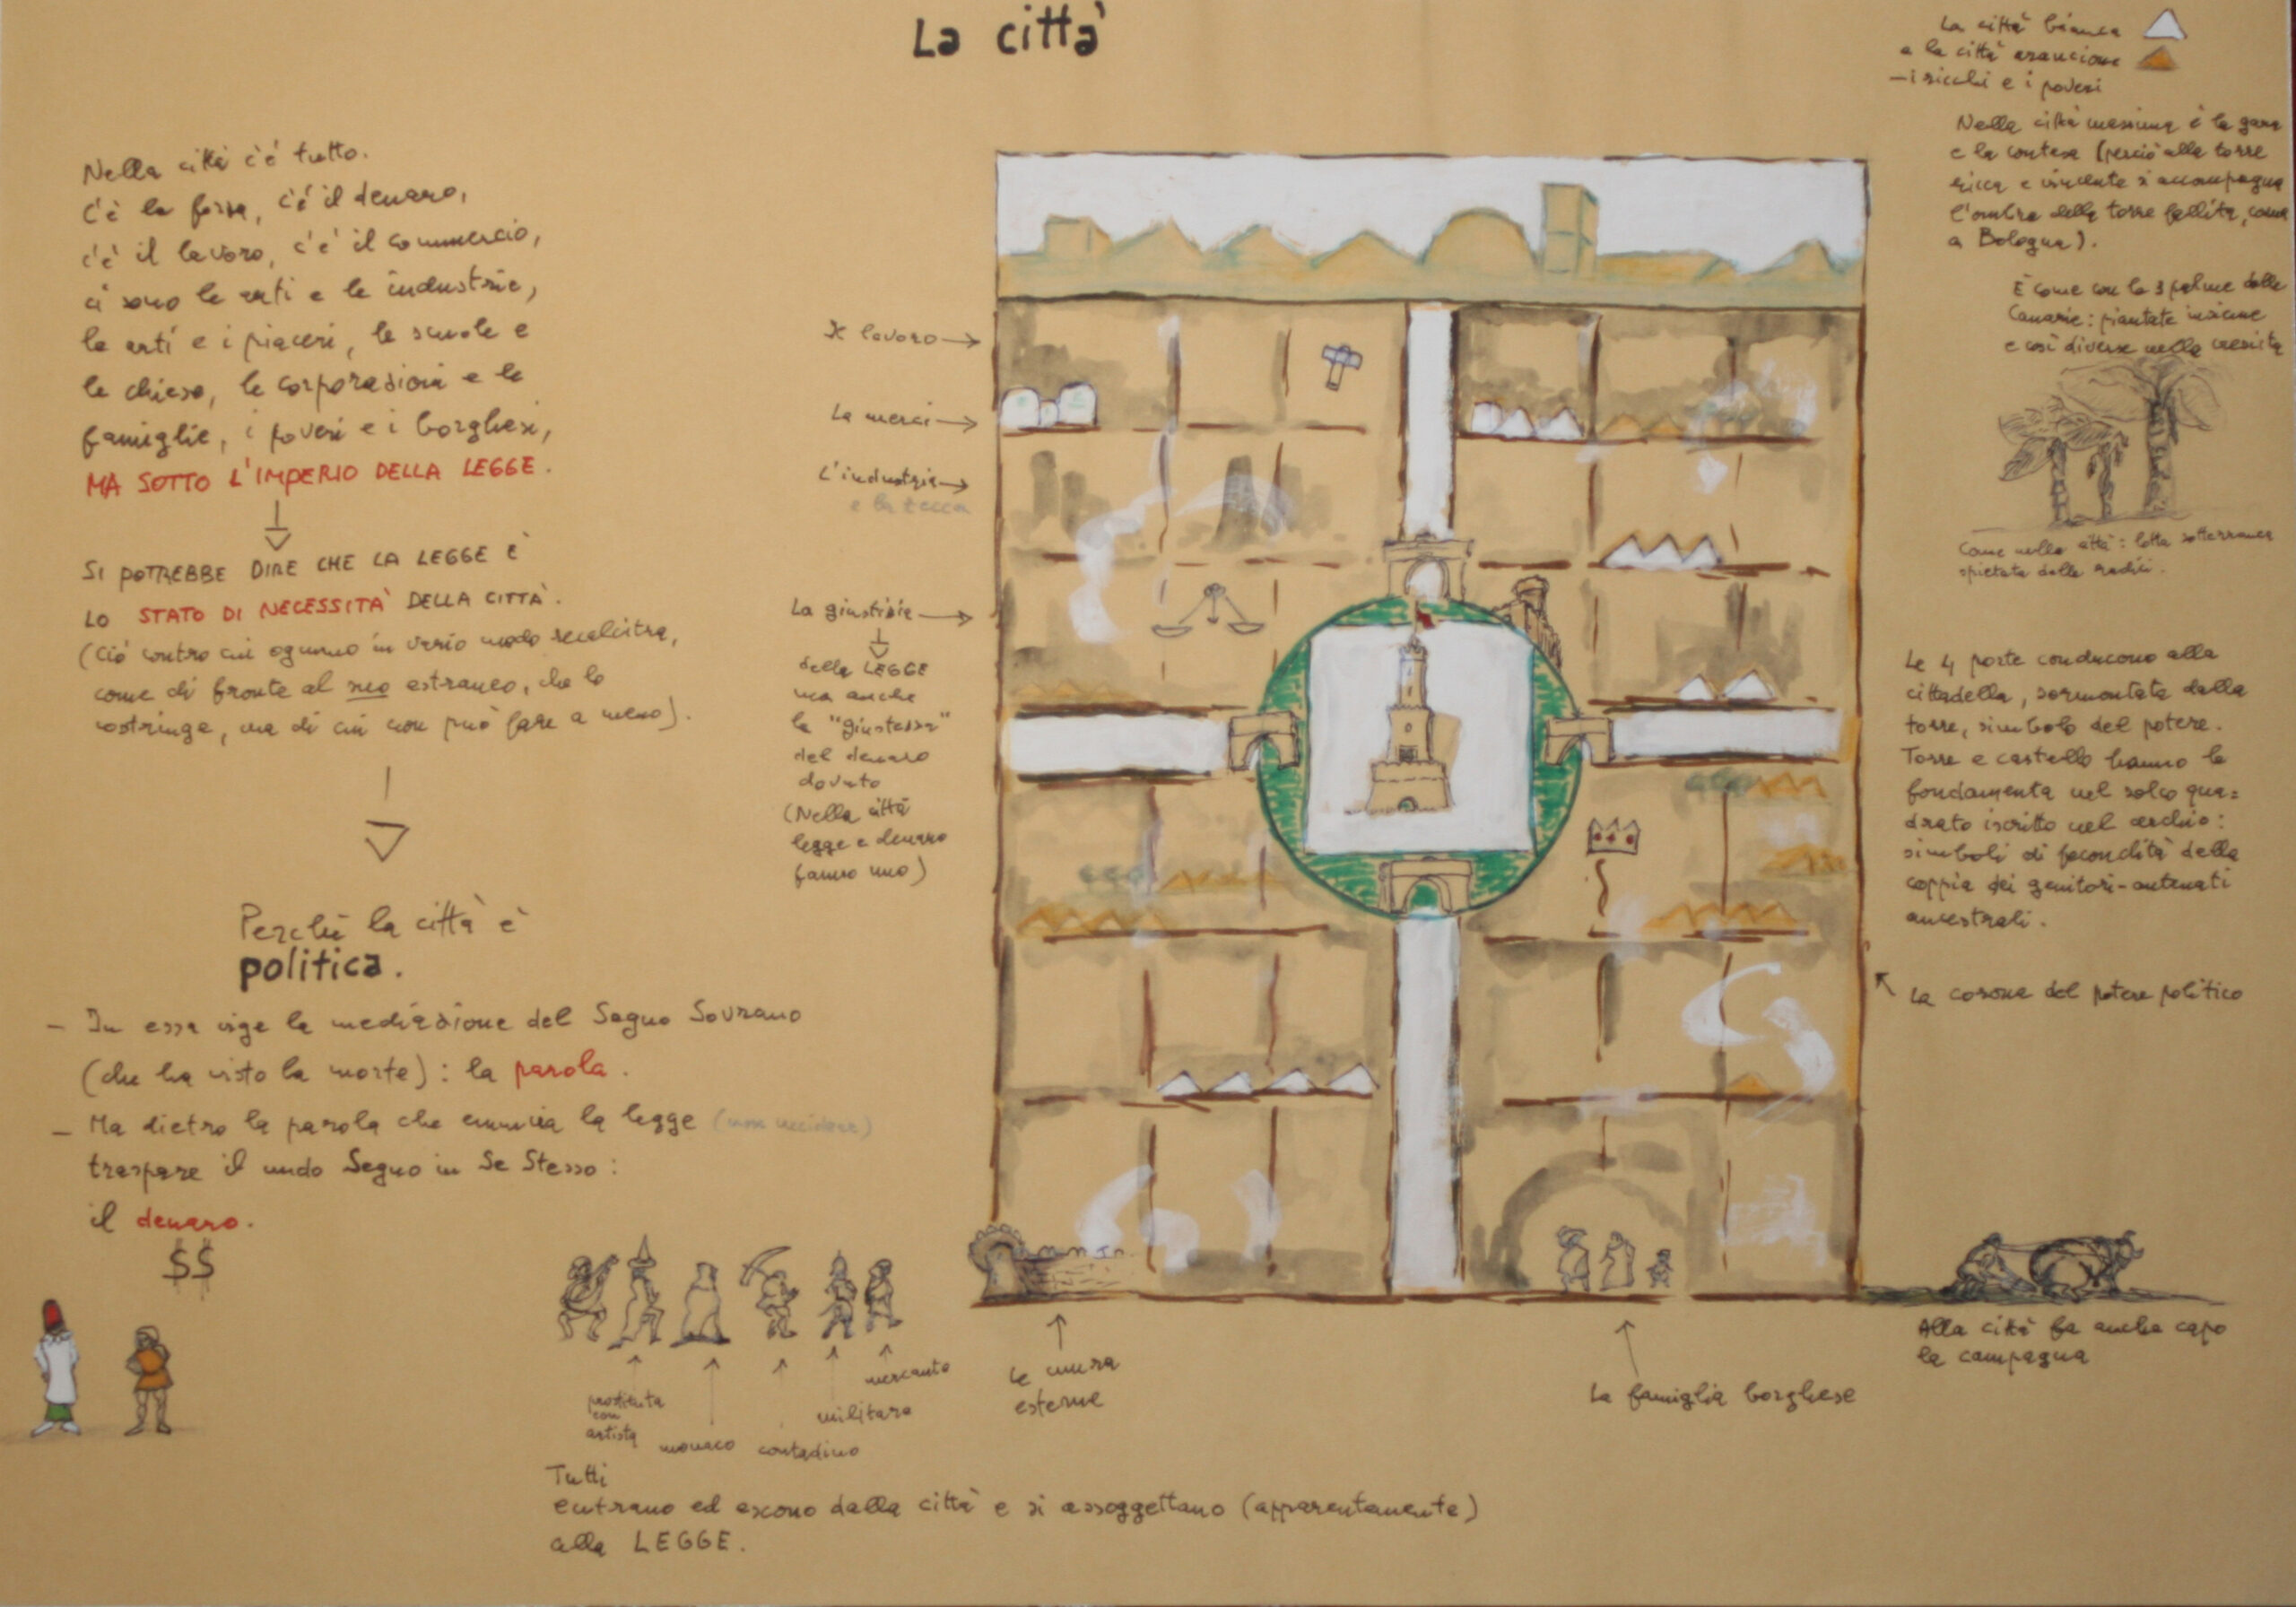 La città
Nella città c'è tutto.
C'è la forza, c'è il denaro,
c'è il lavoro, c'è il commercio,
ci sono le arti e le industrie,
le arti e i piaceri, le scuole e
le chiese, le corporazioni e le
famiglie, i poveri e i borghesi,
MA SOTTO L'IMPERIO DELLA LEGGE.
SI POTREBBE DIRE CHE LA LEGGE È
LO STATO DI NECESSITÀ DELLA CITTÀ.
(Ciò contro cui ognuno in vario modo recalcitra,
come di fronte al suo estraneo, che lo
costringe, ma di cui non può fare a meno).
Perchè la città è
politica.
- In essa vige la mediazione del Segno Sovrano
(che ha visto la morte): la parola.
- Ma dietro la parola che enuncia la legge (non uccidere)
traspare il nudo Segno in Se Stesso:
il denaro.
$$
Il lavoro
Le merci
L'industria
e la zecca
La giustizia
della LEGGE
ma anche
la "giustezza"
del denaro
dovuto
(Nella città
legge e denaro
fanno uno)
La città bianca
e la città arancione
- i ricchi e i poveri
Nella città massima è la gara
e la contesa (perciò alla torre
ricca e vincente si accompagna
l'ombra della torre fallita, come
a Bologna).
È come con le 3 palme delle
Canarie: piantate insieme
e così diverse nella crescita
Come nella città: lotta sotterranea
spietata delle radici.
Le 4 porte conducono alla
cittadella, sormontata dalla
torre, simbolo del potere.
Torre e castello hanno le
fondamenta nel solco qua=
drato iscritto nel cerchio:
simboli di fecondità della
coppia dei genitori-antenati
ancestrali.
La corona del potere politico
Alla città fa anche capo
la campagna
La famiglia borghese
Le mura
esterne
prostituta
con
artista
monaco
contadino
militare
mercante
Tutti
entrano ed escono dalla città e si assoggettano (apparentemente)
alla LEGGE.